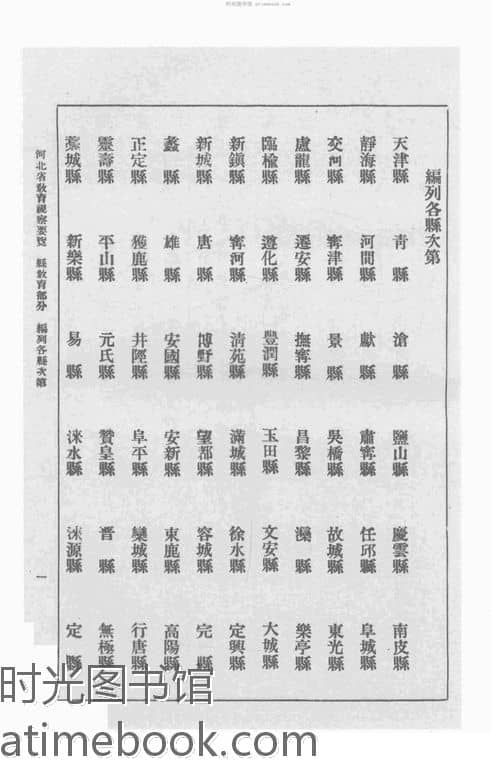 时光图书馆 atimebook.com
編列各縣次第
天津縣 靑縣 滄縣 鹽山縣 慶雲縣 南皮縣
靜海縣 河間縣 獻縣 肅甯縣 任邱縣 阜城縣
交河縣 甯津縣 景縣 吳橋縣 故城縣 東光縣
盧龍縣 遷安縣 撫甯縣 昌黎縣 灤縣 樂亭縣
臨楡縣 遵化縣 豐潤縣 玉田縣 文安縣 大城縣
新鎭縣 甯河縣 淸苑縣 滿城縣 徐水縣 定興縣
新城縣 唐縣 博野縣 望都縣 容城縣 完縣
蠡縣 雄縣 安國縣 安新縣 束鹿縣 高陽縣
正定縣 獲鹿縣 井陘縣 阜平縣 欒城縣 行唐縣
靈壽縣 平山縣 元氏縣 贊皇縣 晋縣 無極縣
藁城縣 新樂縣 易縣 淶水縣 淶源縣 定縣
河北省敎育視察要覽 縣敎育部分 編列各縣次第 一
时光图书馆
atimebook.com